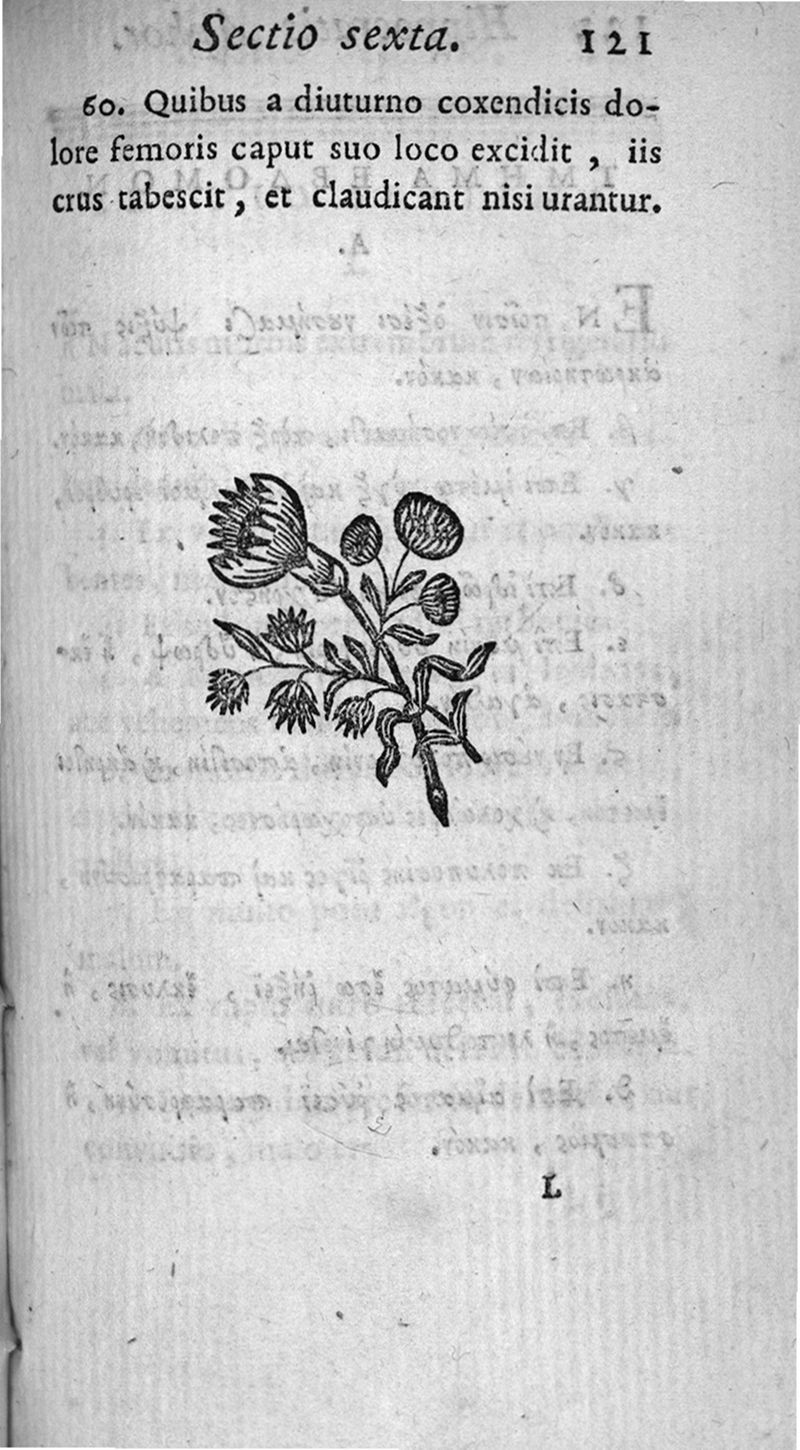 Sectio sexta. 121
60. Quibus a diuturno coxendicis do-
lore femoris caput suo loco excidit , iis
crus tabescit , et claudicant nisi urantur.
L